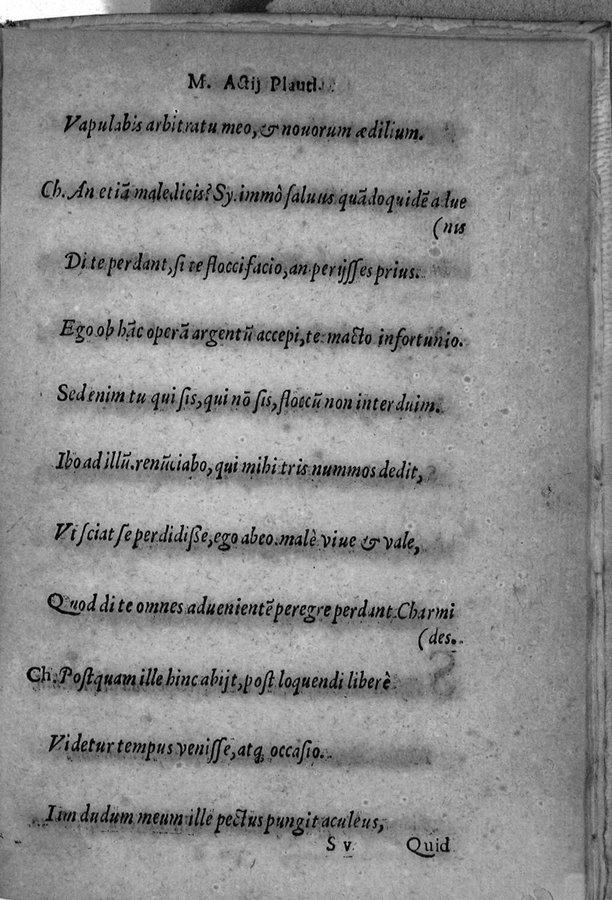 M. Actij Plauti.
Vapulabis arbitratu meo, & nouorum ædilium.
Ch. An etiã maledicis? Sy. immò saluus quãdoquidẽ adue
(nis
Di te perdant, si te flocci facio, an perijsses prius.
Ego ob hãc operã argentũ accepi, te macto infortunio.
Sed enim tu qui sis, qui nõ sis, floccũ non interduim.
Ibo ad illũ. renũciabo, qui mihi tris nummos dedit,
Vt sciat se perdidisse, ego abeo. malè viue & vale,
Quod di te omnes aduenientẽ peregre perdant. Charmi
(des.
Ch. Postquam ille hinc abijt, post loquendi liberè
Videtur tempus venisse, atq; occasio.
Iam dudum meum ille pectus pungit aculeus,
S v Quid